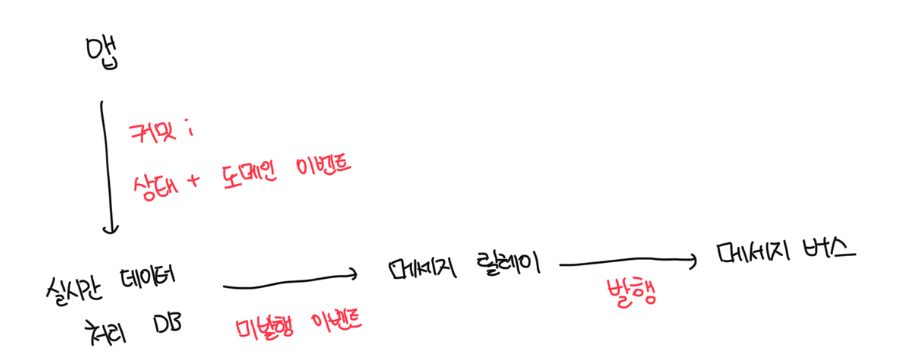 앱
커밋 ;
상태 + 도메인 이벤트
실시간 데이터
처리 DB
미발행 이벤트
메세지 릴레이
발행
메세지 버스